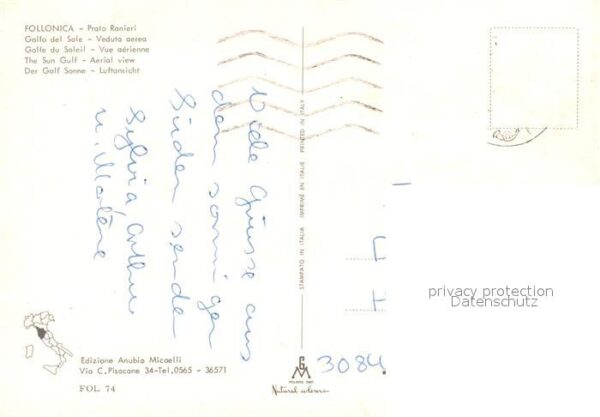 FOLLONICA - Prato Ranieri
Golfo del Sole - Veduta aerea
Golfe du Soleil - Vue aérienne
The Sun Gulf - Aerial view
Der Golf Sonne - Luftansicht
Viele Grüsse aus
dem sonnigen
Süden senden
Sylvia Arthur
u. Marlène
STAMPATO IN ITALIA IMPRIMÉ EN ITALIE PRINTED IN ITALY
privacy protection
Datenschutz
3084
Edizione Anubio Micaelli
Via C.Pisacane 34-Tel.0565 - 36571
FOL 74
GM
Natural colours